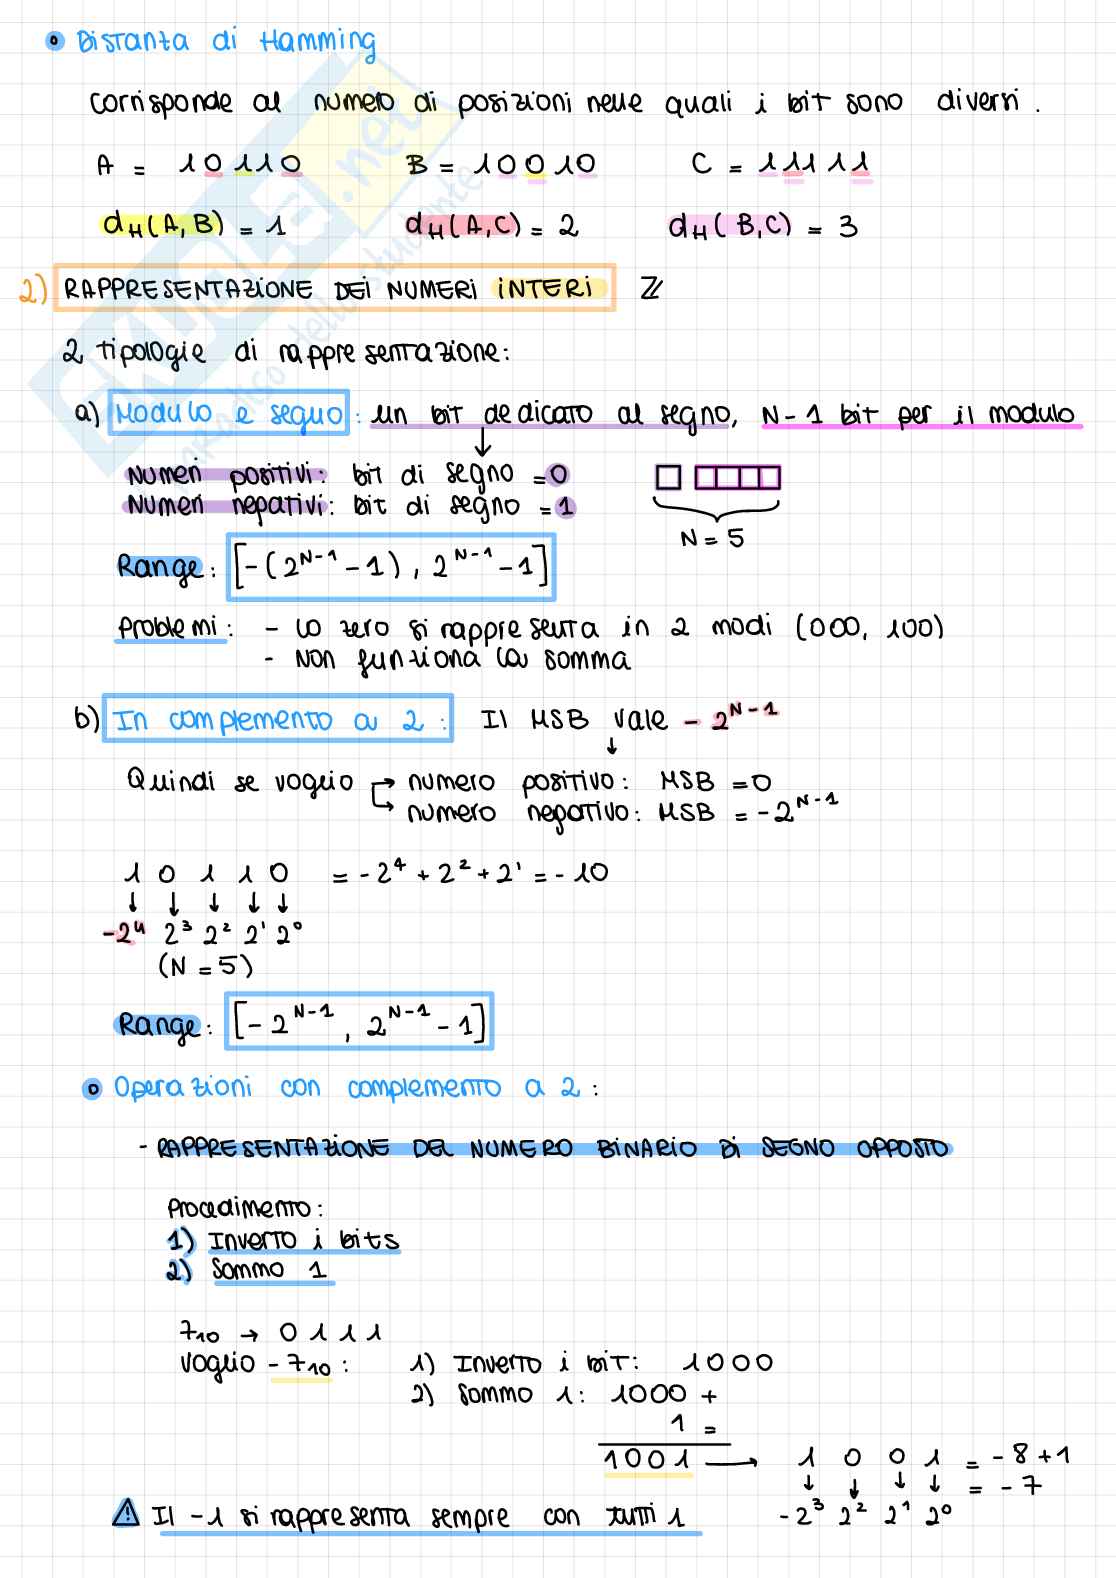 Distanza di Hamming
corrisponde al numero di posizioni nelle quali i bit sono diversi.
A = 10110 B = 10010 C = 11111
dH(A,B) = 1 dH(A,C) = 2 dH(B,C) = 3
2) RAPPRESENTAZIONE DEI NUMERI INTERI ℤ
2 tipologie di rappresentazione:
a) Modulo e segno: un bit dedicato al segno, N-1 bit per il modulo
↓
Numeri positivi: bit di segno = 0
Numeri negativi: bit di segno = 1
N = 5
Range: [-(2^N-1 - 1), 2^N-1 - 1]
Problemi: - lo zero si rappresenta in 2 modi (000, 100)
- Non funziona la somma
b) In complemento a 2: Il MSB vale - 2^N-1
↓
Quindi se voglio → numero positivo: MSB = 0
→ numero negativo: MSB = -2^N-1
1 0 1 1 0 = -2⁴ + 2² + 2¹ = -10
↓ ↓ ↓ ↓ ↓
-2⁴ 2³ 2² 2¹ 2⁰
(N = 5)
Range: [-2^N-1, 2^N-1 - 1]
Operazioni con complemento a 2:
- RAPPRESENTAZIONE DEL NUMERO BINARIO DI SEGNO OPPOSTO
Procedimento:
1) Inverto i bits
2) Sommo 1
7₁₀ → 0 1 1 1
Voglio -7₁₀: 1) Inverto i bit: 1000
2) Sommo 1: 1000 +
1 =
1001 → 1 0 0 1 = -8+1
↓ ↓ ↓ ↓ = -7
-2³ 2² 2¹ 2⁰
⚠ Il -1 si rappresenta sempre con tutti 1
SKUOLA.net
paradiso dello studente